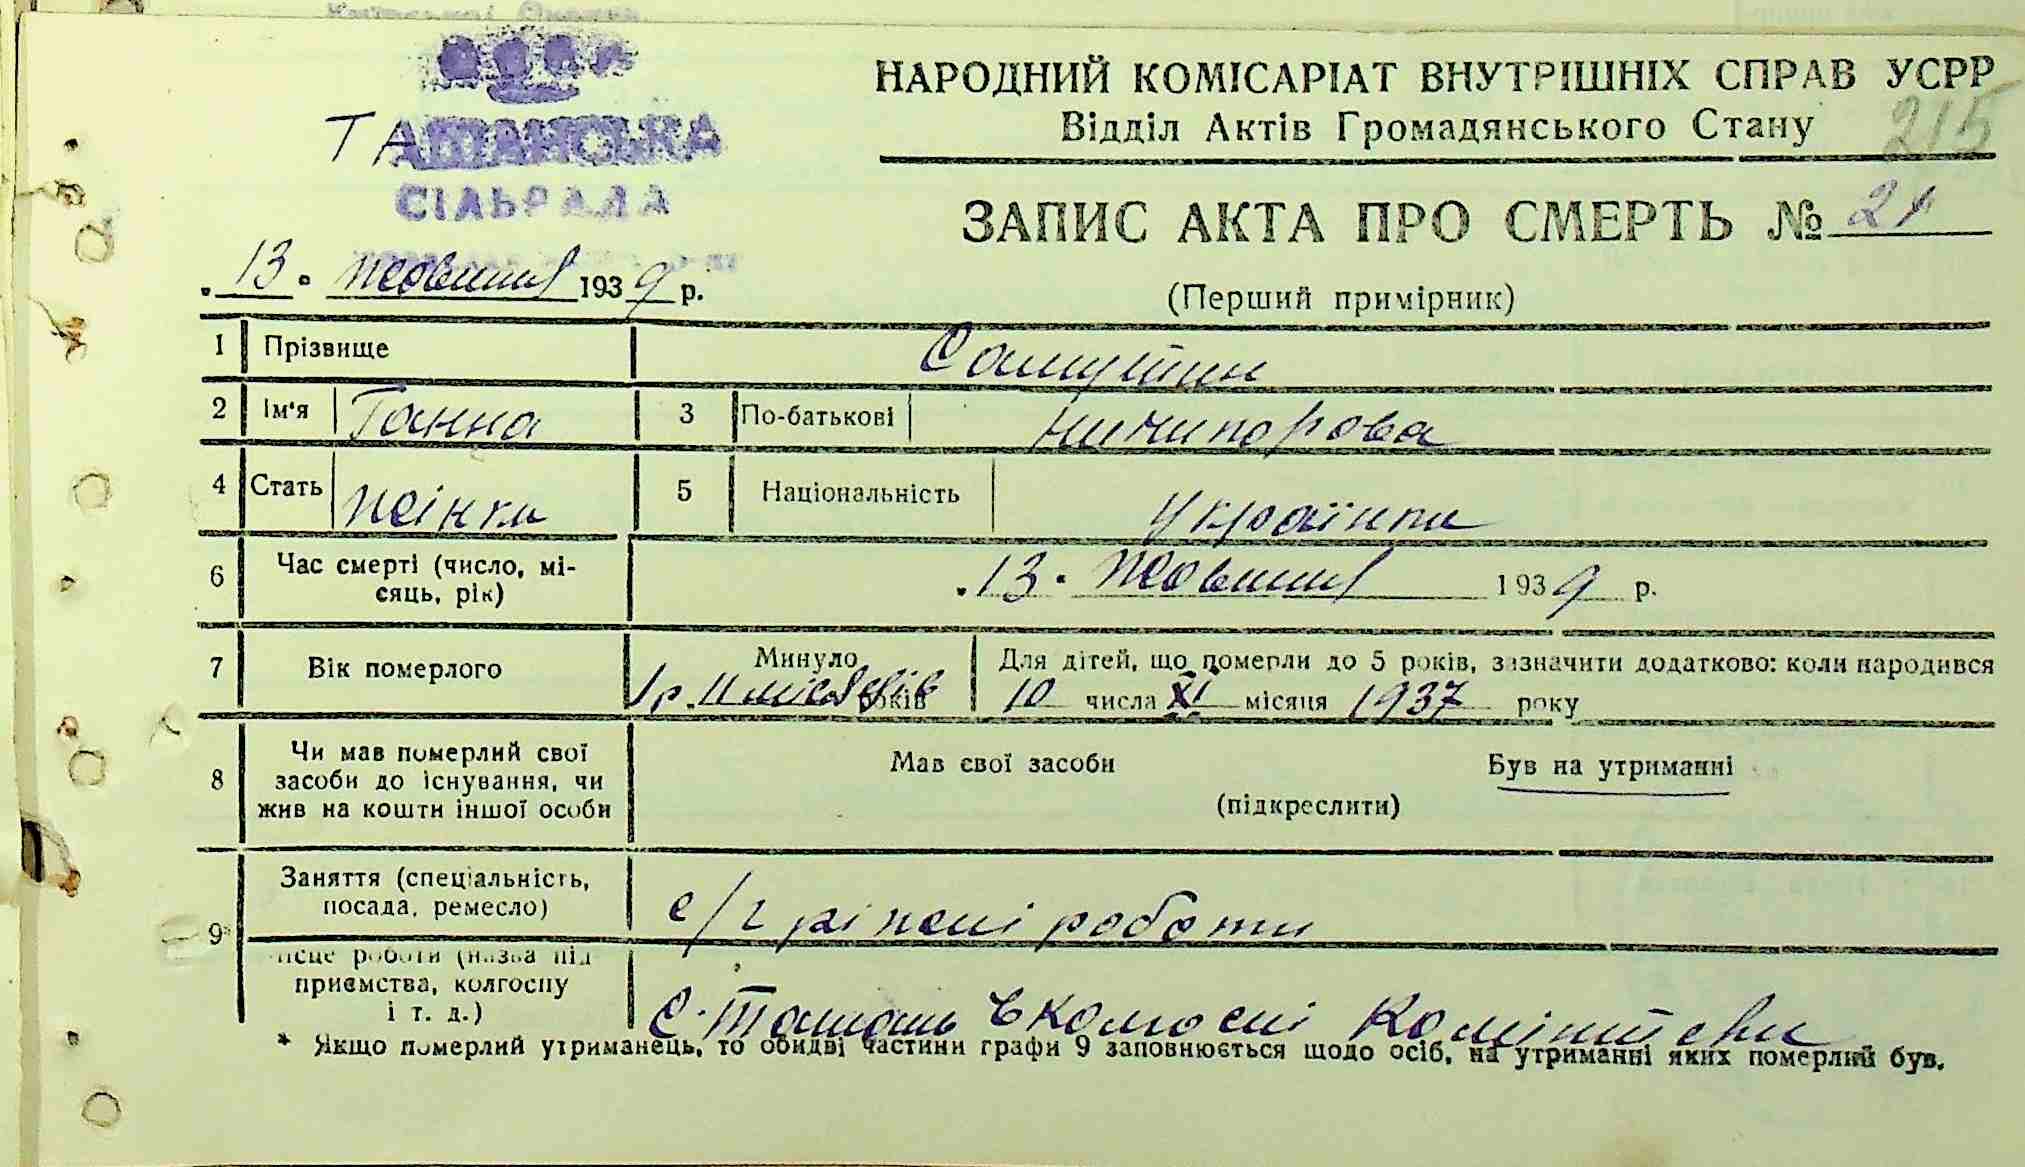 НАРОДНИЙ КОМІСАРІАТ ВНУТРІШНІХ СПРАВ УСРР
Відділ Актів Громадянського Стану
215
ТАШАНСЬКА
СІЛЬРАДА
ЗАПИС АКТА ПРО СМЕРТЬ № 21
(Перший примірник)
„13" жовтня 1939 р.
1 Прізвище Самутин
2 Ім'я Ганна 3 По-батькові Ничипорова
4 Стать жінка 5 Національність Українка
6 Час смерті (число, мі-
сяць, рік) „13" жовтня 1939 р.
7 Вік померлого Минуло 1 р. 11 місяців років
Для дітей, що померли до 5 років, зазначити додатково: коли народився
10 числа XI місяця 1937 року
8 Чи мав померлий свої
засоби до існування, чи
жив на кошти іншої особи
Мав свої засоби Був на утриманні
(підкреслити)
9* Заняття (спеціальність,
посада, ремесло) с/г різні роботи
ісце роботи (назва під
приємства, колгоспу
і т. д.) с. Ташань в колгоспі Комінтерн
* Якщо померлий утриманець, то обидві частини графи 9 заповнюється щодо осіб, на утриманні яких померлий був.